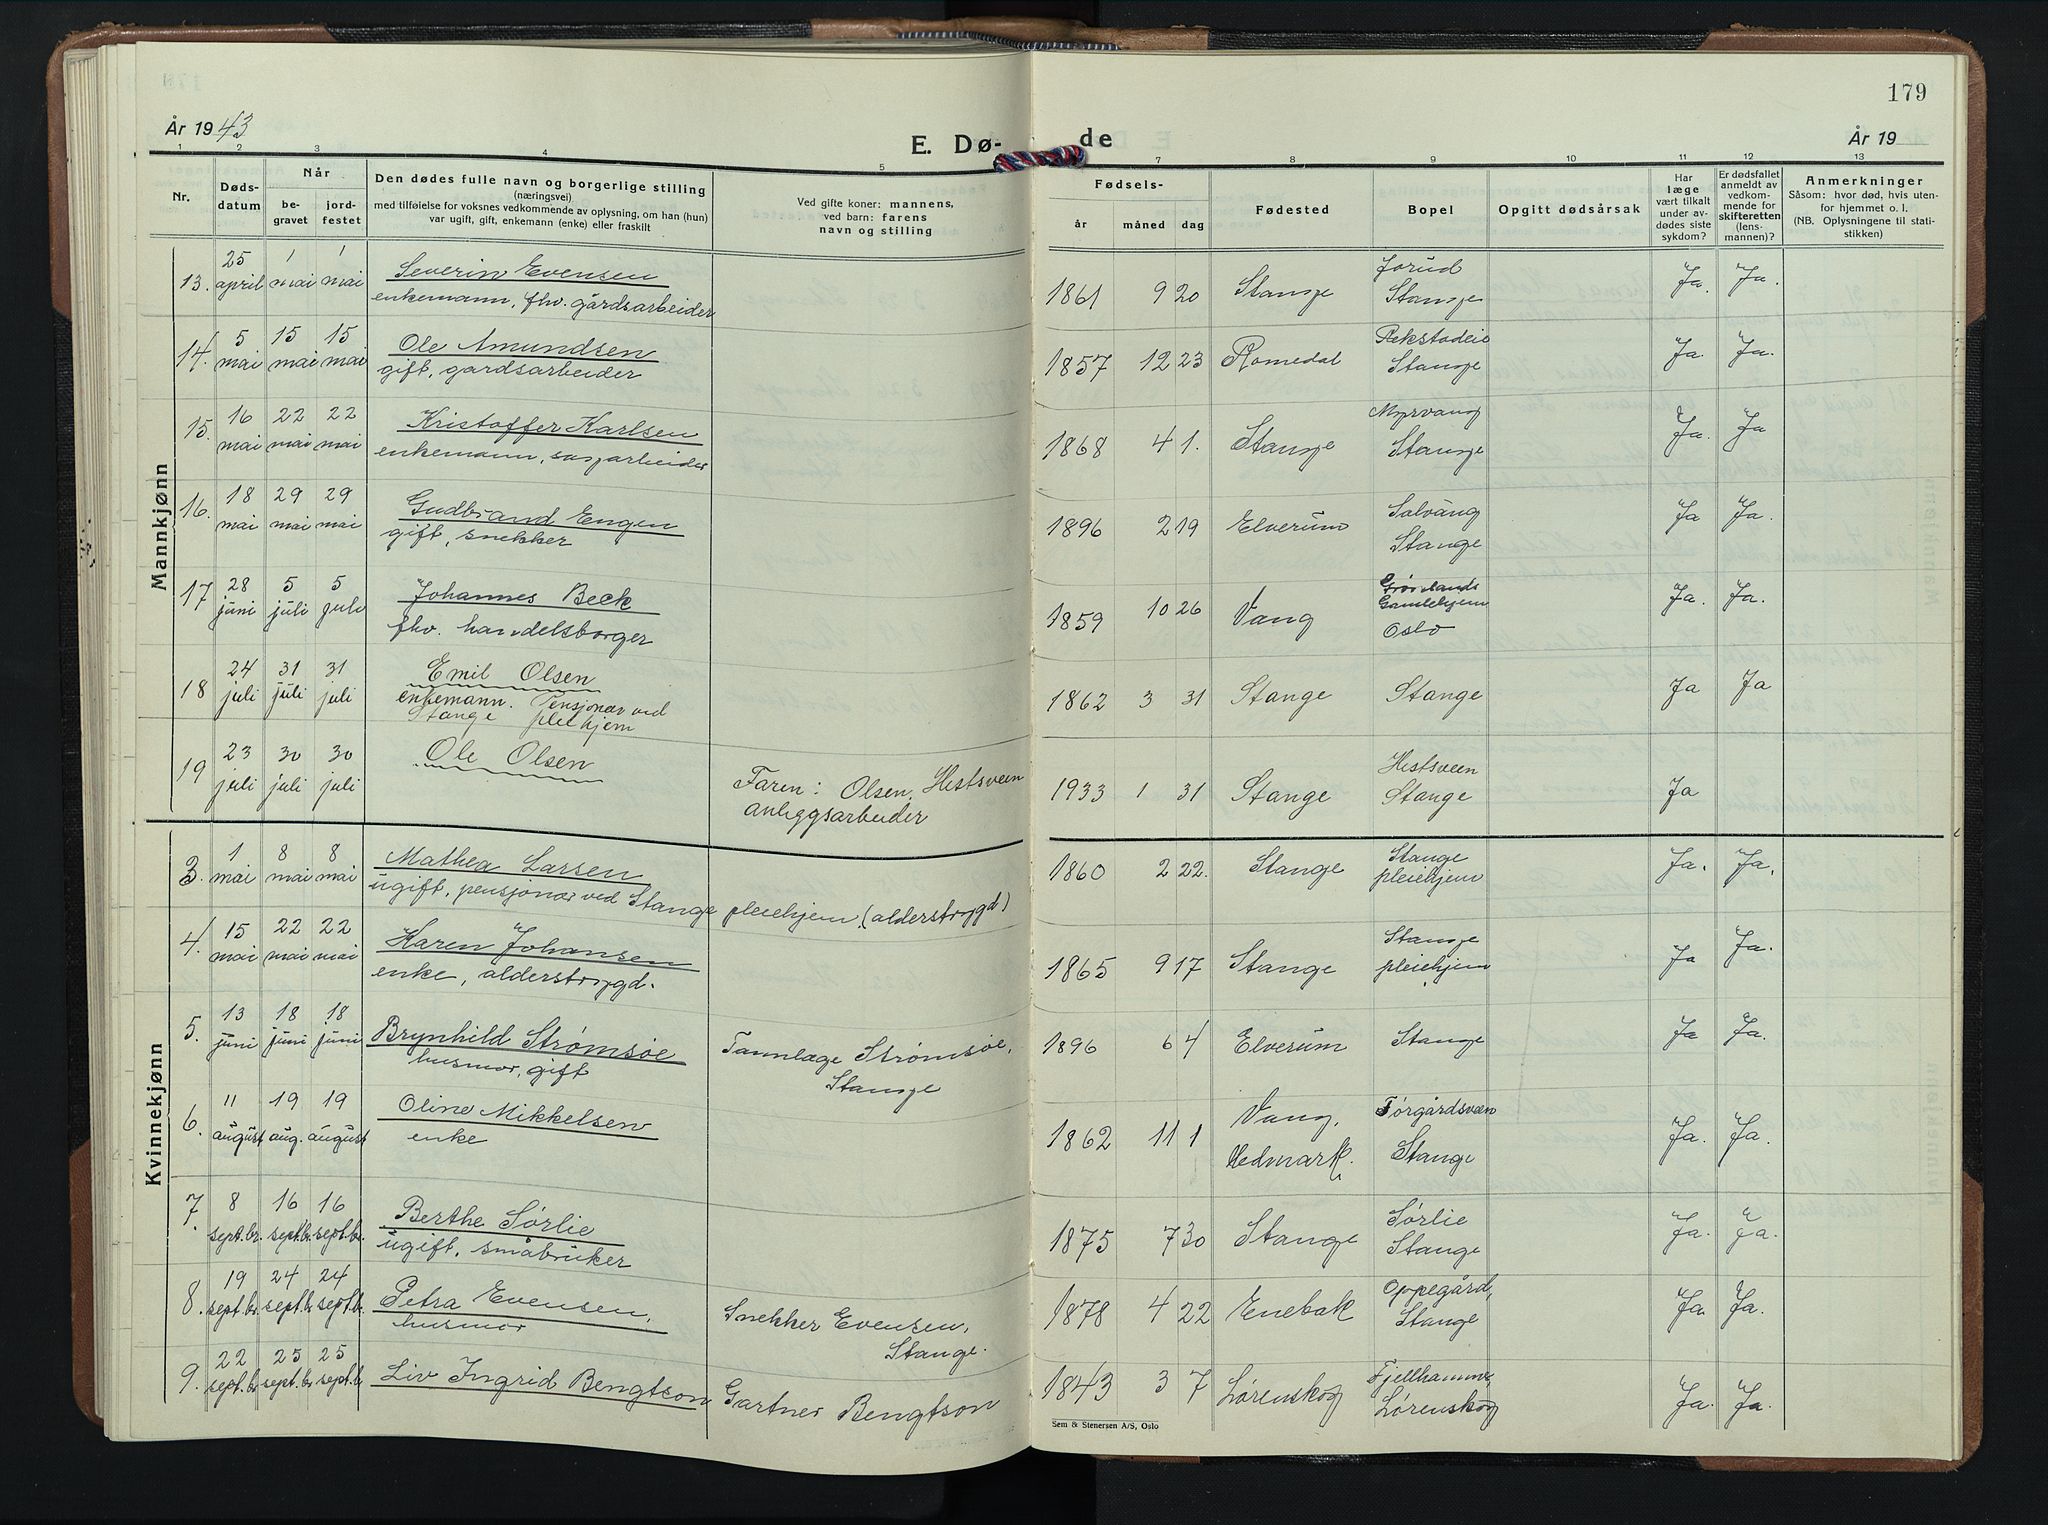 179
År 1943
E. Dø-
de
År 19
1 2 3 4 5 7 8 9 10 11 12 13
Nr.
Døds-
datum
Når
be-
gravet
jord-
festet
Den dødes fulle navn og borgerlige stilling
(næringsvei)
med tilføielse for voksnes vedkommende av oplysning, om han (hun)
var ugift, gift, enkemann (enke) eller fraskilt
Ved gifte koner: mannens,
ved barn: farens
navn og stilling
Fødsels-
år måned dag
Fødested
Bopel
Opgitt dødsårsak
Har
læge
vært tilkalt
under av-
dødes siste
sykdom?
Er dødsfallet
anmeldt av
vedkom-
mende for
skifteretten
(lens-
mannen)?
Anmerkninger
Såsom: hvor død, hvis uten-
for hjemmet o. l.
(NB. Oplysningene til stati-
stikken)
Mannkjønn
13. 25 april 1 mai 1 mai Severin Evensen
enkemann, fhv. gårdsarbeider
1861 9 20 Stange Jorud
Stange Ja. Ja.
14. 5 mai 15 mai 15 mai Ole Amundsen
gift, gårdsarbeider
1857 12 23 Romedal Rekstadeie
Stange Ja. Ja.
15. 16 mai 22 mai 22 mai Kristoffer Karlsen
enkemann, sagarbeider
1868 4 1. Stange Myrvang
Stange Ja. Ja
16. 18 mai 29 mai 29 mai Gudbrand Engen
gift, snekker
1896 2 19 Elverum Solvang
Stange Ja Ja.
17 28 juni 5 juli 5 juli Johannes Beck
fhv. handelsborger
1859 10 26 Vang Grønlands
Gamlehjem
Oslo Ja. Ja.
18 24 juli 31 juli 31 juli Emil Olsen
enkemann. Pensjonær ved
Stange pleiehjem
1862 3 31 Stange Stange Ja Ja
19 23 juli 30 juli 30 juli Ole Olsen
Faren: Olsen, Hestsveen
anleggsarbeider
1933 1 31 Stange Hestsveen
Stange Ja
Kvinnekjønn
3. 1 mai 8 mai 8 mai Mathea Larsen
ugift, pensjonær ved Stange pleiehjem (alderstrygd)
1860 2 22. Stange Stange
pleiehjem Ja. Ja.
4. 15 mai 22 mai 22 mai Karen Johansen
enke, alderstrygd.
1865 9 17 Stange Stange
pleiehjem Ja Ja.
5. 13 juni 18 juni 18 juni Brynhild Strømsøe
husmor, gift
Tannlæge Strømsøe,
Stange
1896 6 4 Elverum Stange Ja Ja.
6. 11 august 19 aug. 19 august Oline Mikkelsen
enke
1862 11 1 Vang,
Hedmark. Torgårdsveen
Stange Ja. Ja.
7. 8 sept.br. 16 sept.br. 16 sept.br. Berthe Sørlie
ugift, småbruker
1875 7 30 Stange Sørlie
Stange Ja. Ja.
8. 19 sept.br 24 sept.br 24 sept.br Petra Evensen,
husmor
Snekker Evensen,
Stange.
1878 4 22 Enebak Oppegård,
Stange Ja. Ja.
9. 22 sept.br 25 sept.br 25 sept.br Liv Ingrid Bengtson
Gartner Bengtson
1843 3 7 Lørenskog Fjellhammer,
Lørenskog Ja. Ja.
Sem & Stenersen A/S, Oslo